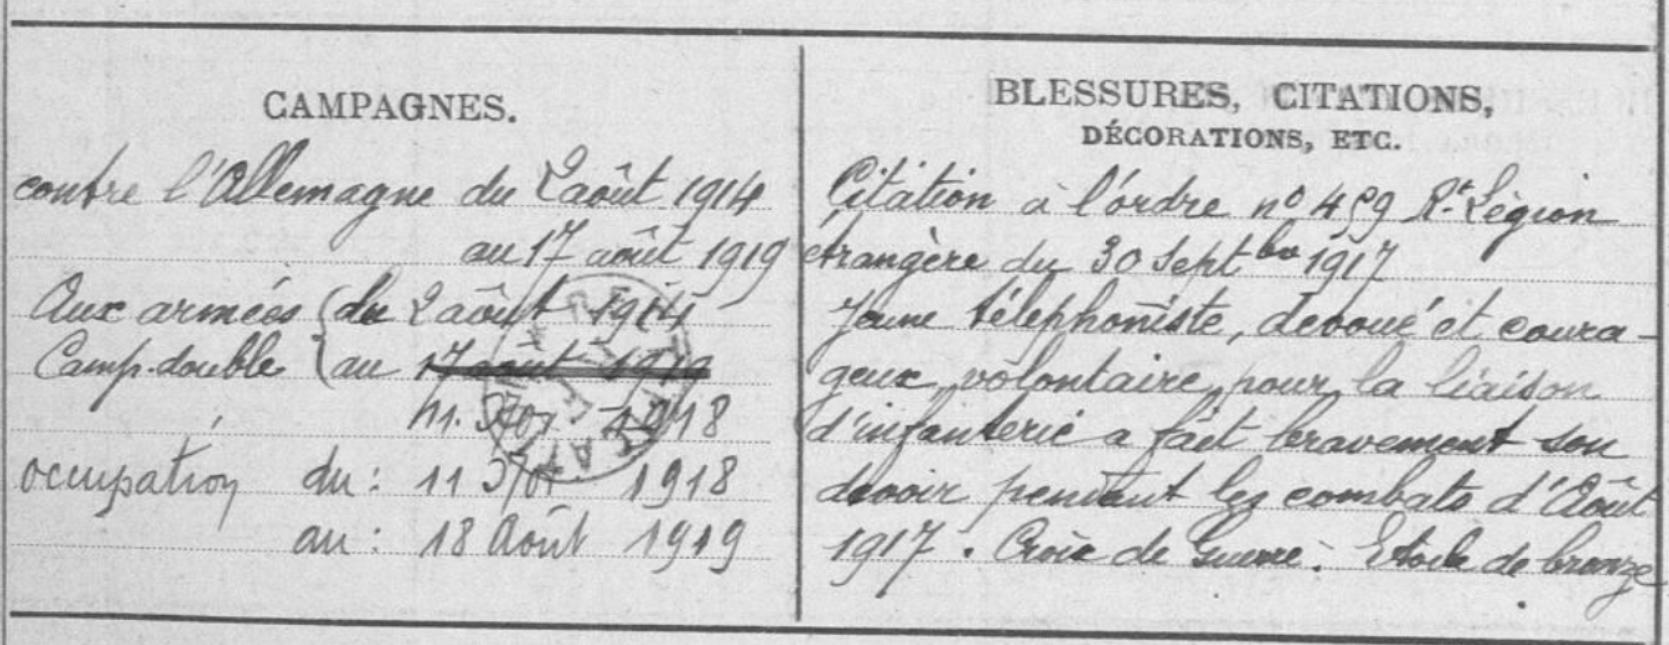 CAMPAGNES.
contre l'Allemagne du 2 août 1914
au 17 août 1919
Aux armées { du 2 août 1914
Camp. double { au 17 août 1919
11. Nov. 1918
occupation du : 11 Nov. 1918
au : 18 Août 1919
BLESSURES, CITATIONS,
DÉCORATIONS, ETC.
Citation à l'ordre n° 459 Rt Légion
étrangère du 30 Septbre 1917
Jeune téléphoniste, devoué et coura-
geux, volontaire pour la liaison
d'infanterie a fait bravement son
devoir pendant les combats d'Août
1917. Croix de Guerre. Etoile de bronze